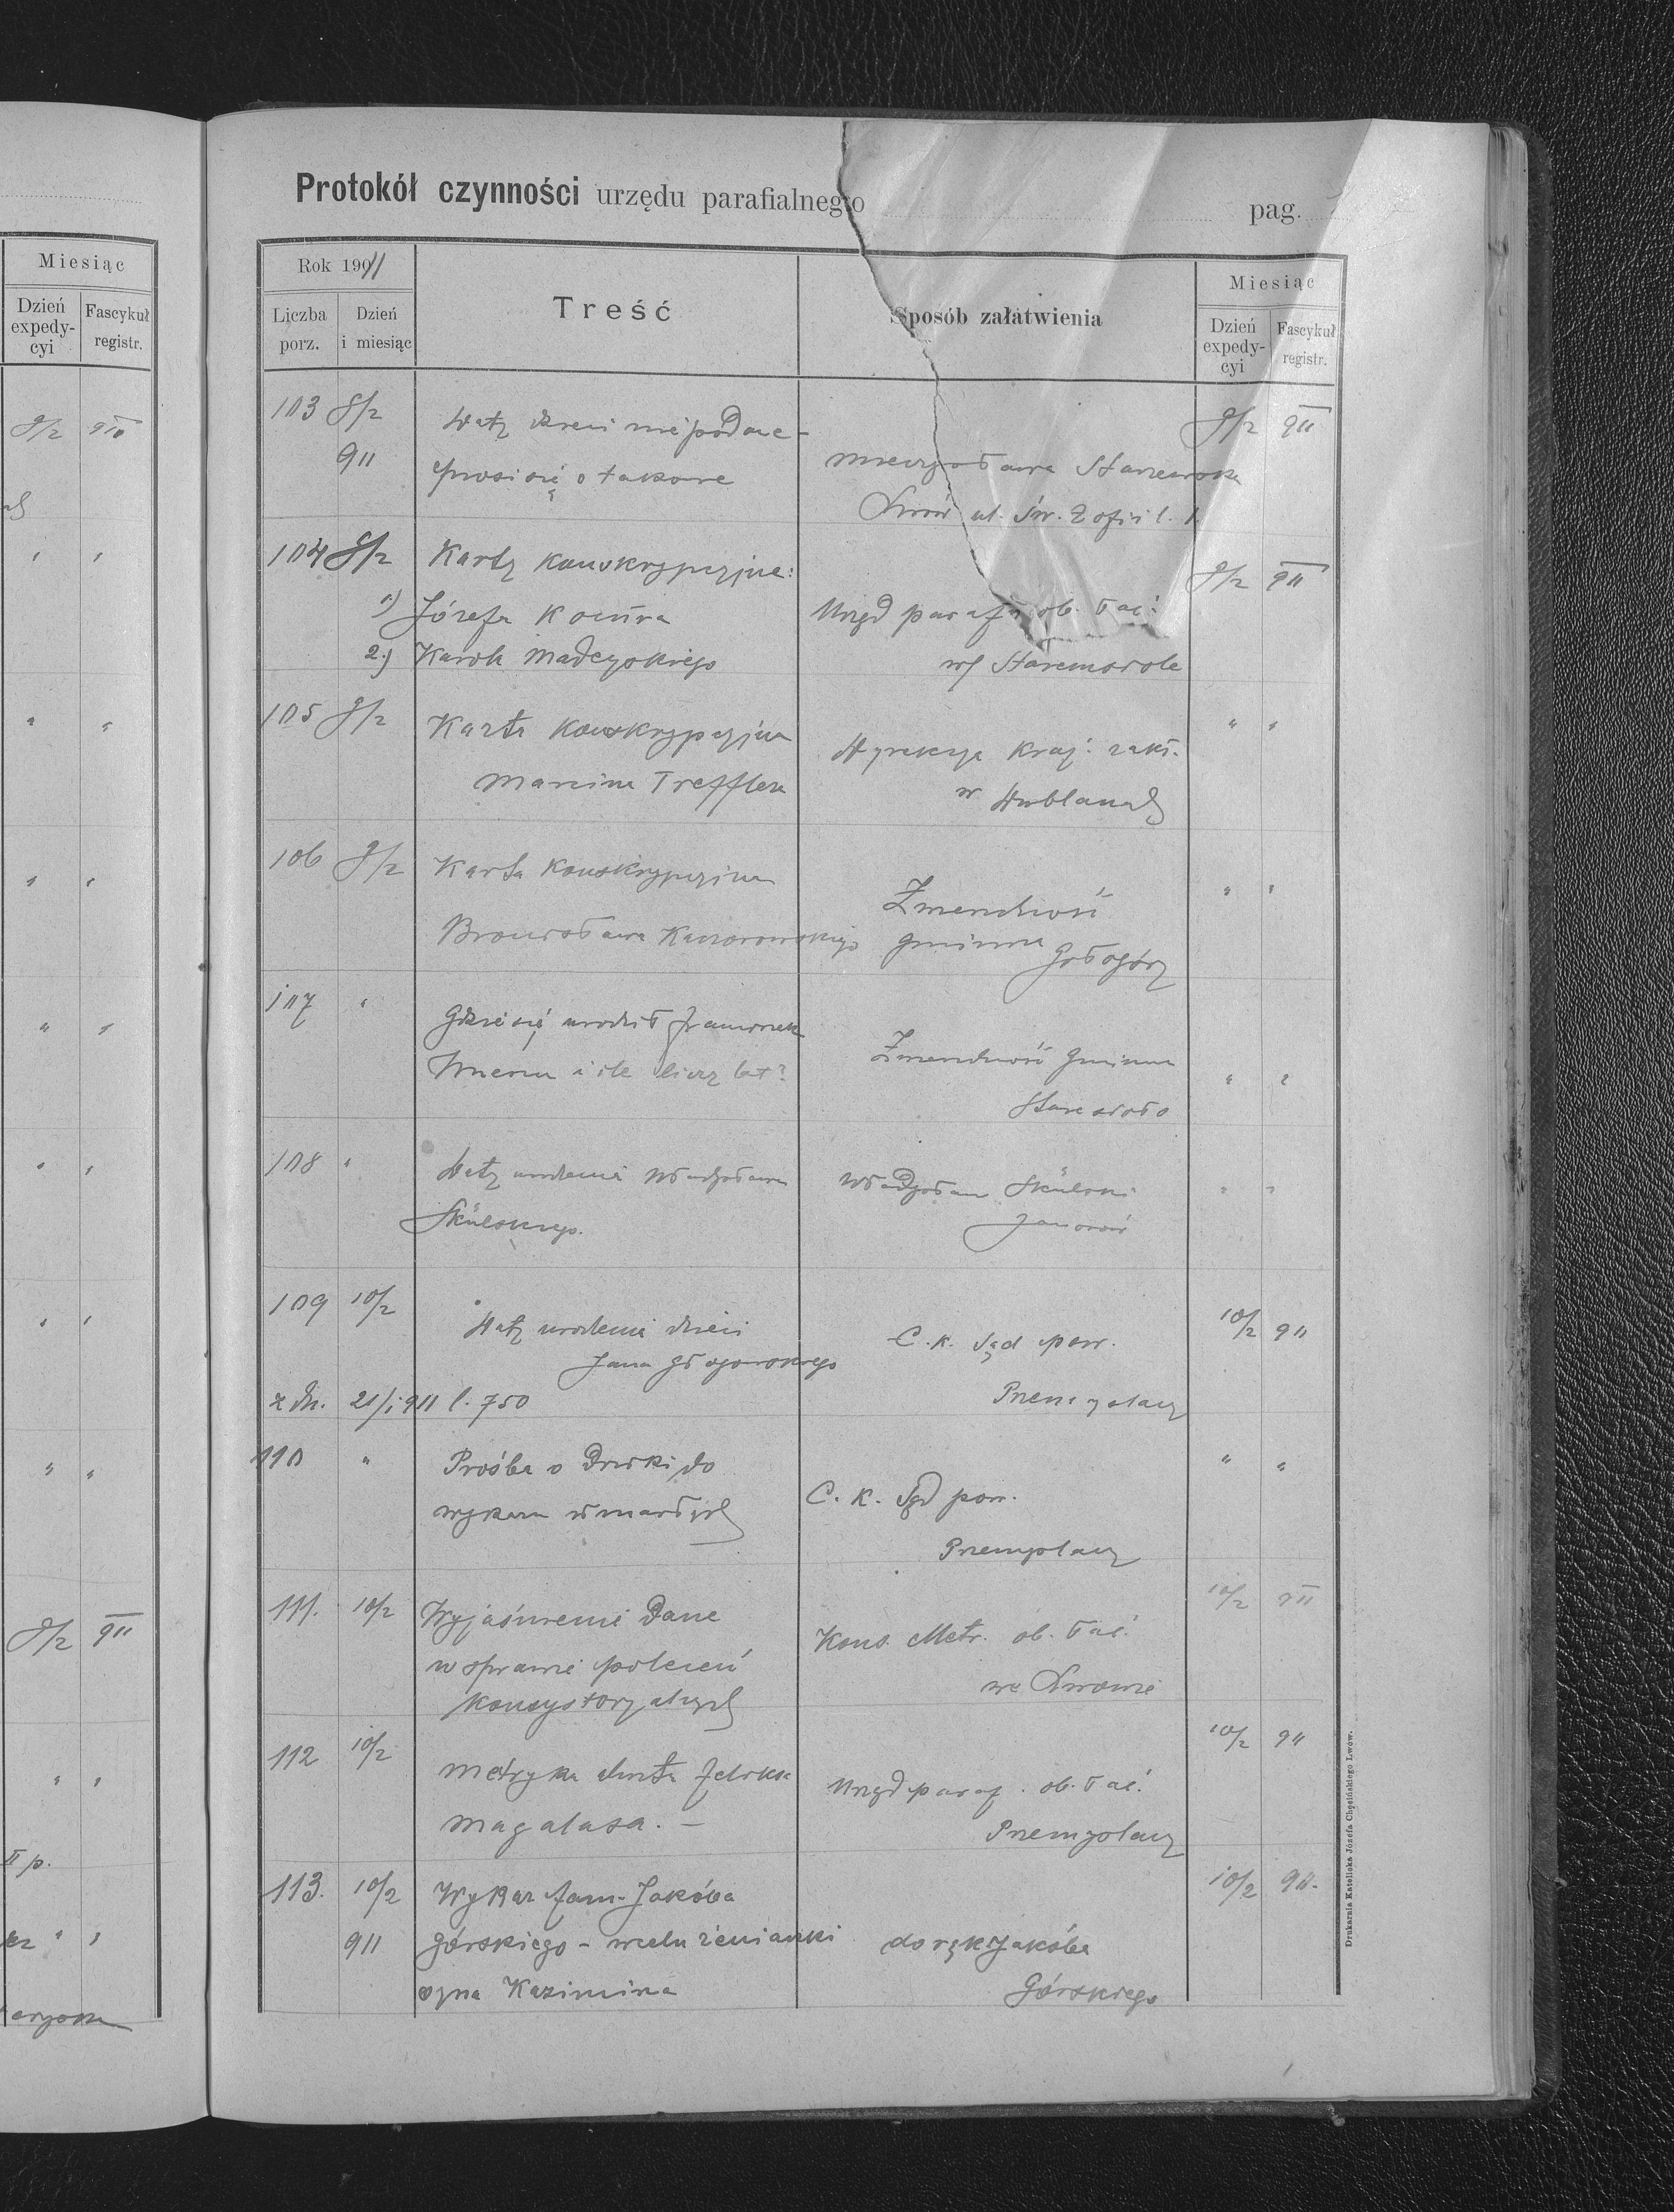 Miesiąc
Dzień expedy-cyi
Fascykuł registr.
8/2 911
8/2 911
II p.
Protokół czynności urzędu parafialnego
pag.
Rok 1911
Liczba porz.
Dzień i miesiąc
Treść
Sposób załatwienia
Miesiąc
Dzień expedy-cyi
Fascykuł registr.
103 8/2 Daty dzieci nie podane - 8/2 911
911 prosi się o takowe
Lwów ul. św. Zofii l. 1
104 8/2 Karty konskrypcyjne: 8/2 911
1) Józefa Kociura Urząd paraf. ob. łać.
2.) Karola Madeyskiego w Staremsiole
105 8/2 Karta konskrypcyjna Dyrekcya kraj. zakł. " "
Marcina Trefflera w Dublanach
106 8/2 Karta konskrypcyjna Zwierzchność " "
Bronisława Kaczorowskiego gminna Gołogóry
107 " Gdzie się urodził Franciszek Zwierzchność gminna
i ile liczy lat? " "
Stare sioło
108 " Daty urodzenia Władysława Władysław Skulski " "
Skulskiego. Janów
109 10/2 Daty urodzenia dzieci C. k. Sąd pow. 10/2 911
Jana
z dn. 21/1 911 l. 750 Przemyślany
110 " Prośba o druki do C. k. Sąd pow. " "
wykazu zmarłych
Przemyślany
111. 10/2 Wyjaśnienie dane Kons. Metr. ob. łać. 10/2 911
w sprawie poleceń we Lwowie
konsystoryalnych
112 10/2 Metryka chrztu Feliksa Urząd paraf. ob. łać. 10/2 911
Magalasa. - Przemyślany
113. 10/2 Wykaz fam. Jakóba 10/2 911.
911 Górskiego - do rąk Jakóba
syna Kazimirza Górskiego
Drukarnia Katolicka Józefa Chęcińskiego Lwów.